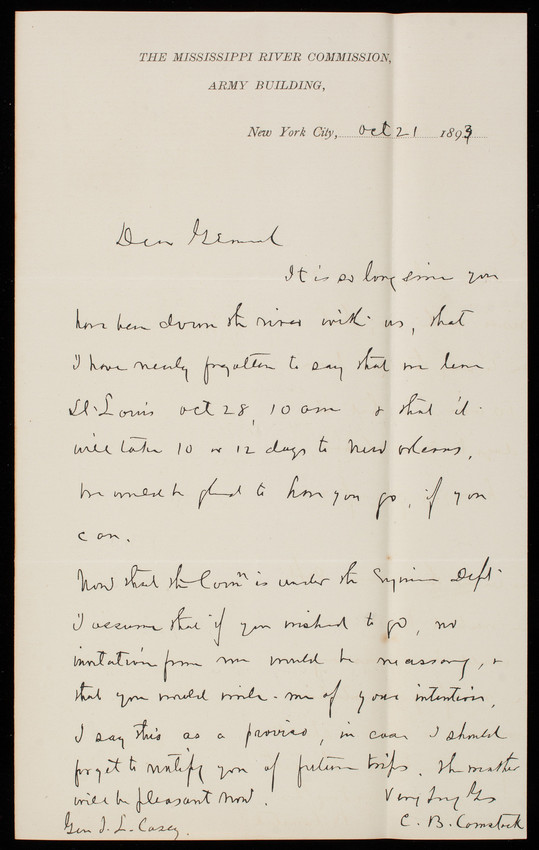 THE MISSISSIPPI RIVER COMMISSION,
ARMY BUILDING,
New York City, Oct 21 1893
Dear General
It is so long since you
have been down the river with us, that
I have nearly forgotten to say that we leave
St. Louis Oct 28, 10 am & that it
will take 10 or 12 days to New Orleans.
We would be glad to have you go, if you
can.
Now that the Comn is under the Engineer Dept
I assume that if you wished to go, no
invitation from me would be necessary, &
that you would write me of your intention,
I say this as a proviso, in case I should
forget to notify you of future trips. The weather
will be pleasant now.
Very Truly Yrs
C. B. Comstock
Gen T. L. Casey.